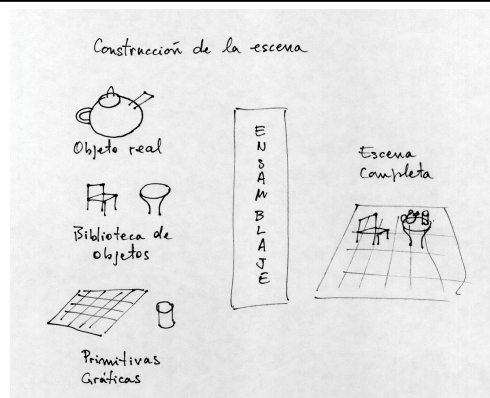 Construcción de la escena
Objeto real
Biblioteca de
objetos
Primitivas
Gráficas
ENSAMBLAJE
Escena
Completa